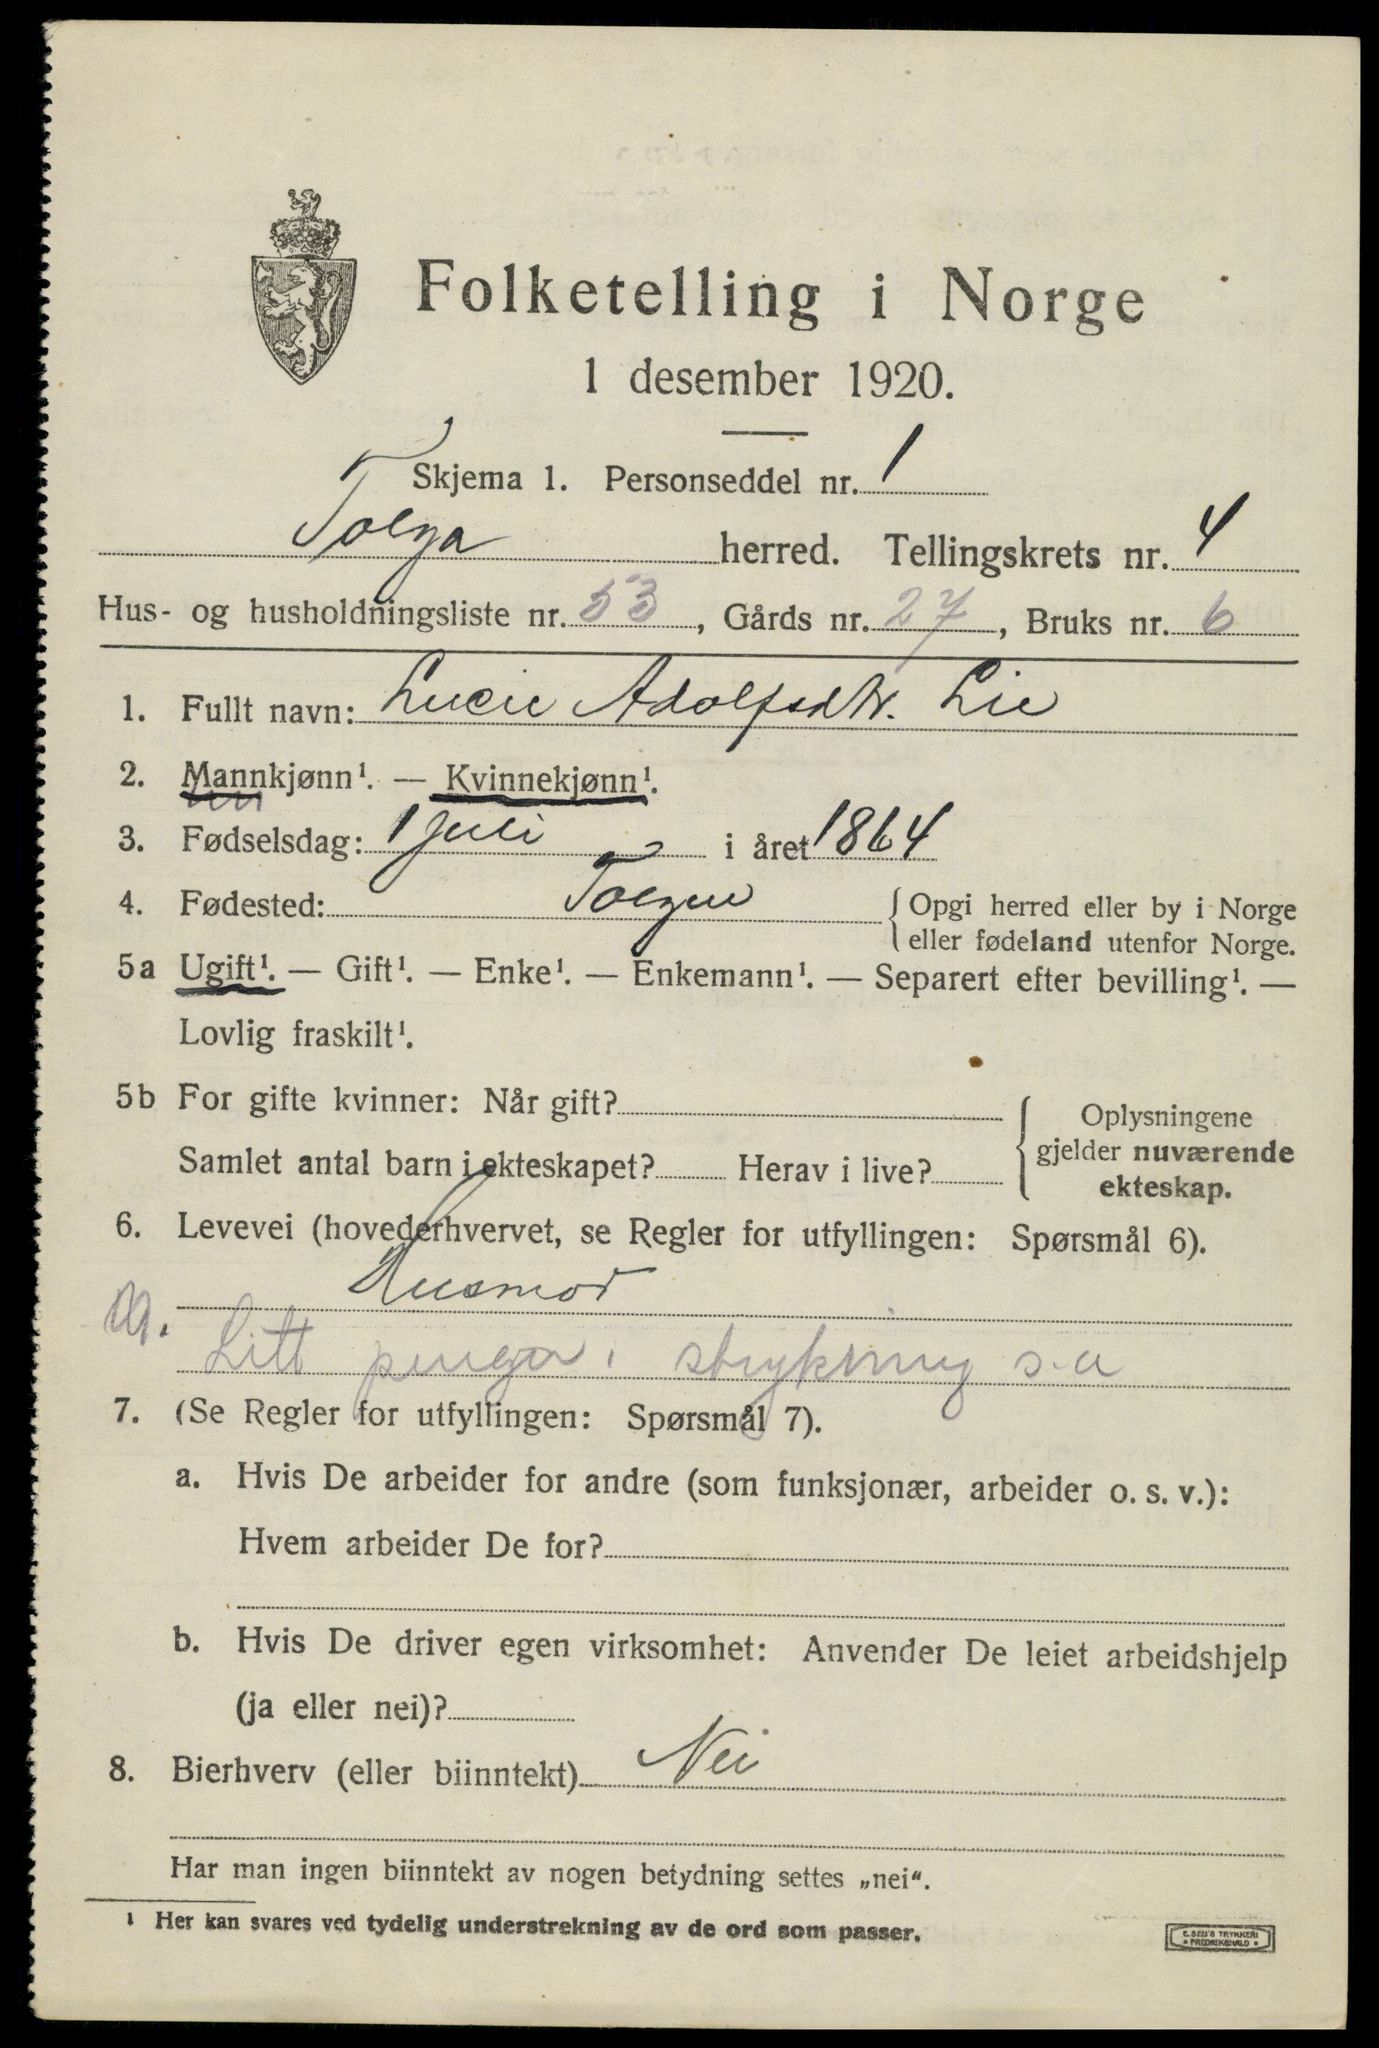 Folketelling i Norge
1 desember 1920.
Skjema 1. Personseddel nr. 1
Tolga herred. Tellingskrets nr. 4
Hus- og husholdningsliste nr. 53, Gårds nr. 27, Bruks nr. 6
1. Fullt navn: Lucie Adolfsdtr. Lie
2. Mannkjønn¹. — Kvinnekjønn¹.
3. Fødselsdag: 1 juli i året 1864
4. Fødested: Tolgen { Opgi herred eller by i Norge
eller fødeland utenfor Norge.
5a Ugift¹. — Gift¹. — Enke¹. — Enkemann¹. — Separert efter bevilling¹. —
Lovlig fraskilt¹.
5b For gifte kvinner: Når gift? { Oplysningene
gjelder nuværende
ekteskap.
Samlet antal barn i ekteskapet? Herav i live?
6. Levevei (hovederhvervet, se Regler for utfyllingen: Spørsmål 6).
Husmor
Litt penga i strykning s.a
7. (Se Regler for utfyllingen: Spørsmål 7).
a. Hvis De arbeider for andre (som funksjonær, arbeider o. s. v.):
Hvem arbeider De for?
b. Hvis De driver egen virksomhet: Anvender De leiet arbeidshjelp
(ja eller nei)?
8. Bierhverv (eller biinntekt) Nei
Har man ingen biinntekt av nogen betydning settes „nei“.
¹ Her kan svares ved tydelig understrekning av de ord som passer.
E. SEM'S TRYKKERI
• FREDRIKSHALD •